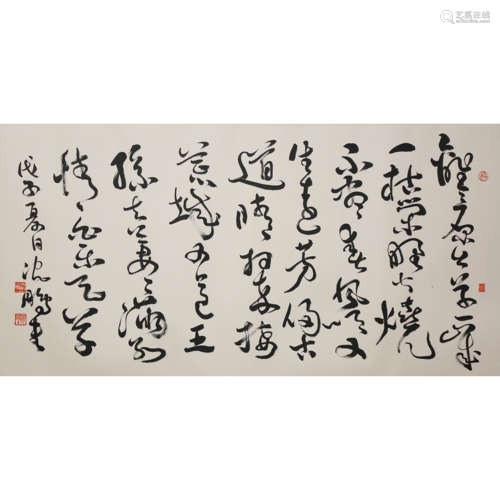 艺狐在线
離離原上草一歲
一枯榮野火燒
不盡春風吹又
生遠芳侵古
道晴翠接
荒城又送王
孫去萋萋滿別
情 白樂天草
戊子夏日沈鵬書